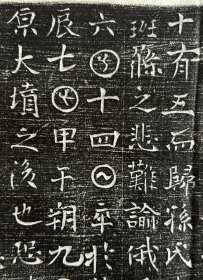 十有五而歸孫氏
之悲難諭俄
六𠥱十四𡆠卒於
辰七𠥱甲午朔九
原大墳之後也恐